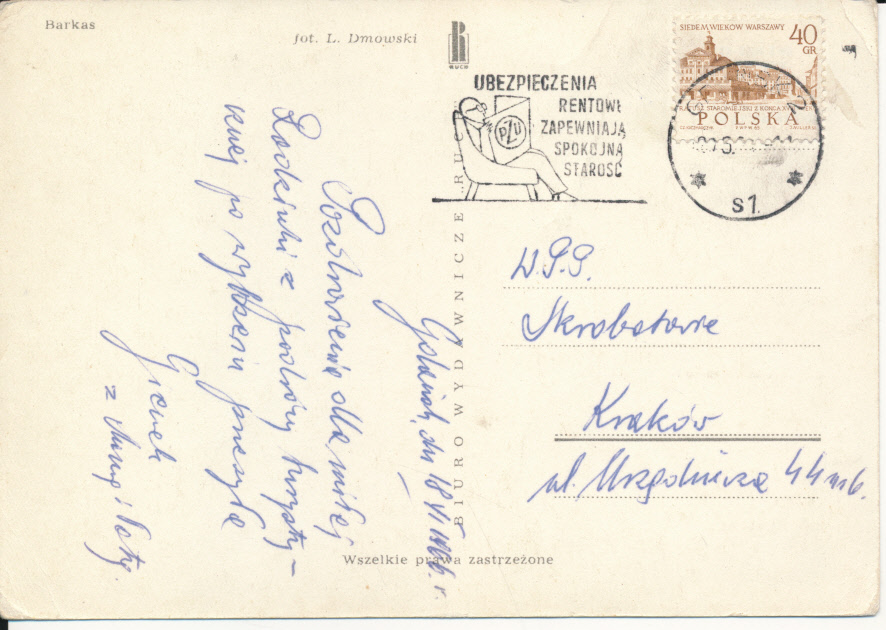 Barkas
fot. L. Dmowski
RUCH
UBEZPIECZENIA
RENTOWE
ZAPEWNIAJĄ
SPOKOJNĄ
STAROŚĆ
PZU
SIEDEM WIEKÓW WARSZAWY
40
GR
POLSKA
S1.
BIURO WYDAWNICZE RUCH
Gdańsk, dn 18 VI 1966 r.
Pozdrowienia dla miłej
Rodzinki z podróży turysty-
cznej po wybrzeżu przesyła
z Mamą i
W.P.P.
Skrobotowie
Kraków
ul. Urzędnicza 44 m 6.
Wszelkie prawa zastrzeżone